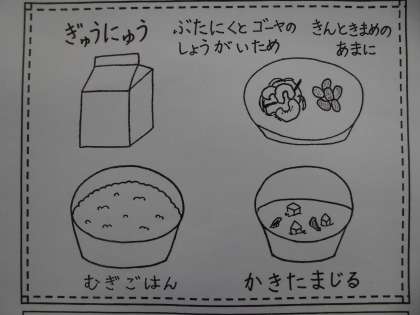 ぎゅうにゅう
ぶたにくとゴーヤの
しょうがいため
きんときまめの
あまに
むぎごはん
かきたまじる